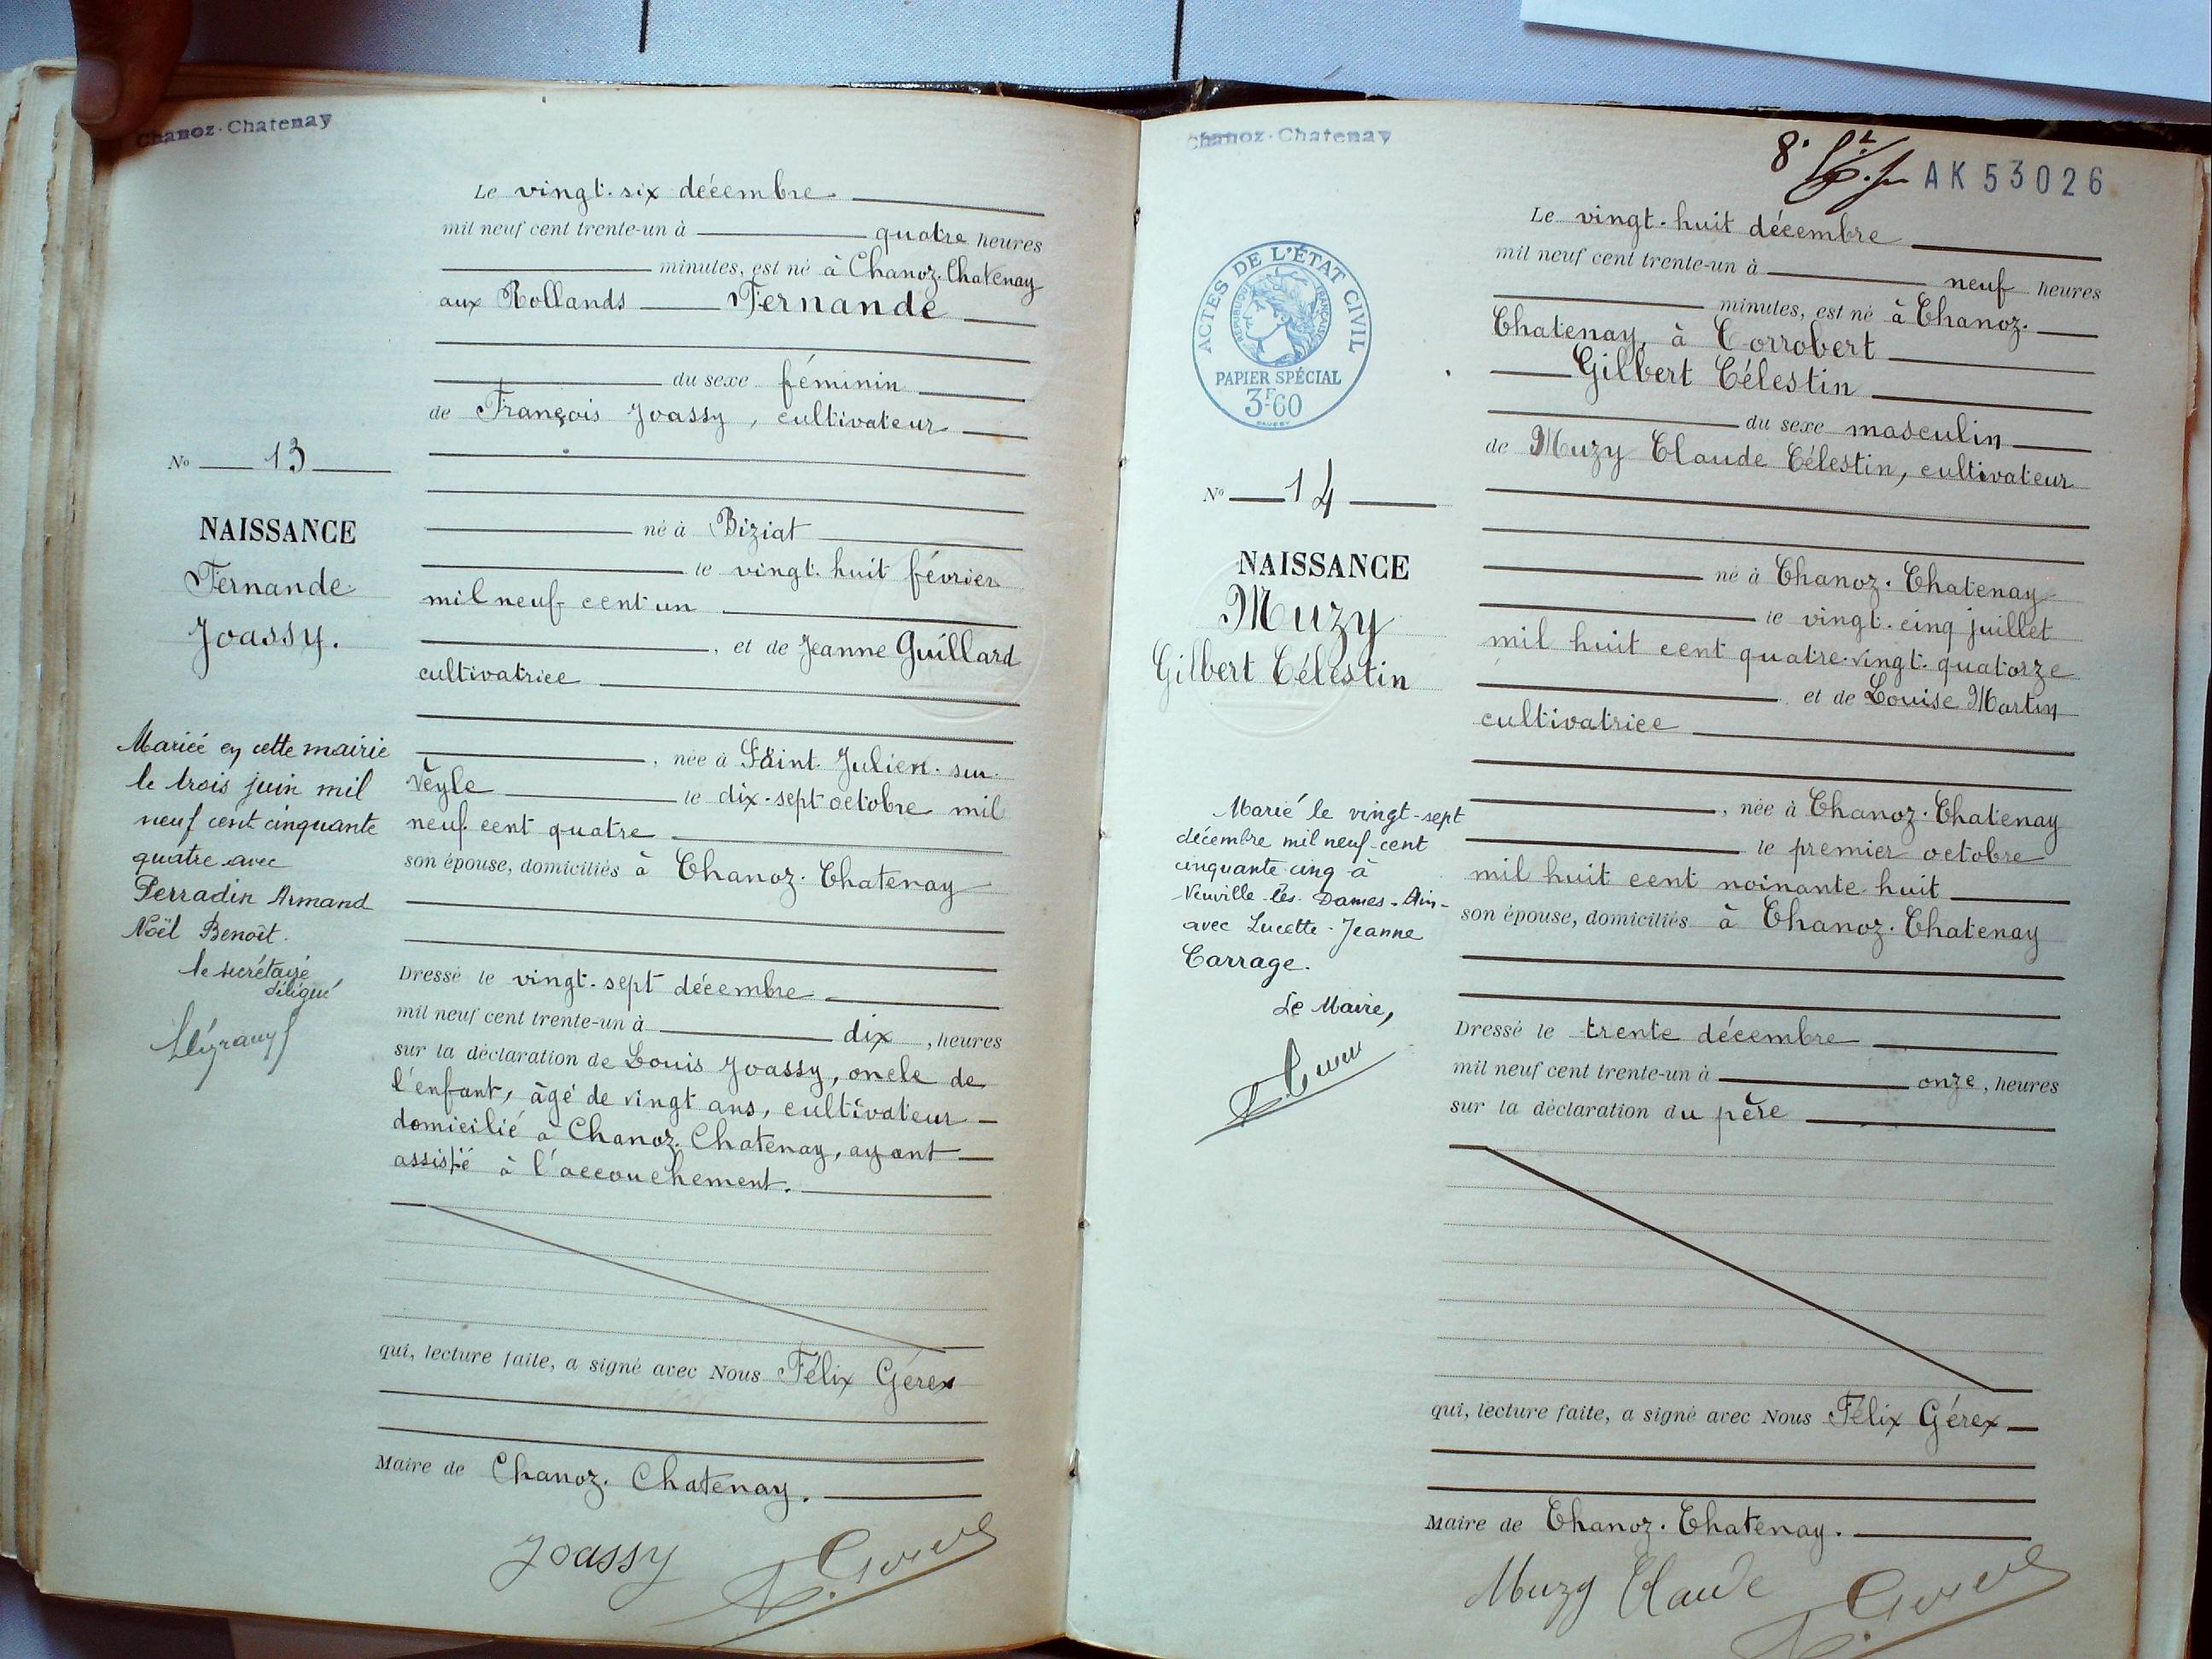 Chanoz-Chatenay
Le vingt-six décembre
mil neuf cent trente-un à quatre heures
minutes, est né à Chanoz-Chatenay
aux Rollands Fernande
du sexe féminin
de François Joassy, cultivateur
No 13
né à Biziat
NAISSANCE
Fernande
Joassy.
le vingt-huit février
mil neuf cent un
, et de Jeanne Guillard
cultivatrice
Mariée en cette mairie
le trois juin mil
neuf cent cinquante
quatre avec
Perradin Armand
Noël Benoît.
le secrétaire
délégué
, née à Saint-Julien-sur-
Veyle le dix-sept octobre mil
neuf cent quatre
son épouse, domiciliés à Chanoz-Chatenay
Dressé le vingt-sept décembre
mil neuf cent trente-un à dix, heures
sur la déclaration de Louis Joassy, oncle de
l'enfant, âgé de vingt ans, cultivateur
domicilié à Chanoz-Chatenay, ayant
assisté à l'accouchement.
qui, lecture faite, a signé avec Nous Félix Gérex
Maire de Chanoz-Chatenay.
Joassy
Chanoz-Chatenay
8.
AK 53026
Le vingt-huit décembre
mil neuf cent trente-un à neuf heures
minutes, est né à Chanoz-
Chatenay, à Corrobert
Gilbert Célestin
du sexe masculin
de Muzy Claude Célestin, cultivateur
ACTES DE L'ÉTAT CIVIL
RÉPUBLIQUE FRANÇAISE
PAPIER SPÉCIAL
3F60
No 14
NAISSANCE
Muzy
Gilbert Célestin
né à Chanoz-Chatenay
le vingt-cinq juillet
mil huit cent quatre-vingt-quatorze
et de Louise Martin
cultivatrice
Marié le vingt-sept
décembre mil neuf-cent
cinquante-cinq à
Neuville-les-Dames-Ain-
avec Lucette-Jeanne
Carrage.
Le Maire,
, née à Chanoz-Chatenay
le premier octobre
mil huit cent noinante-huit
son épouse, domiciliés à Chanoz-Chatenay
Dressé le trente décembre
mil neuf cent trente-un à onze, heures
sur la déclaration du père
qui, lecture faite, a signé avec Nous Félix Gérex
Maire de Chanoz-Chatenay.
Muzy Claude